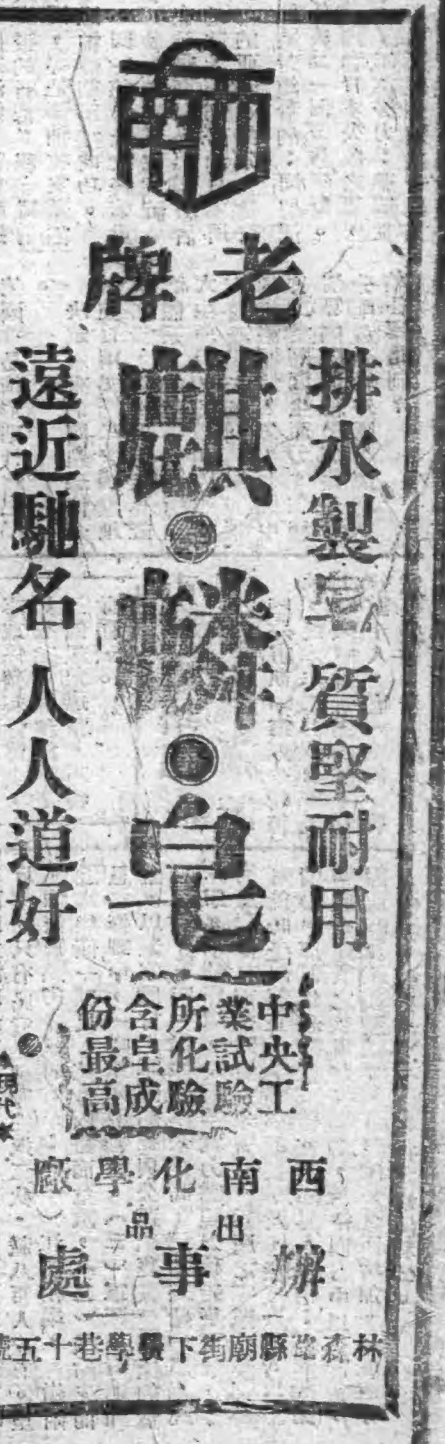 西南
老牌
麒麟皂
排水製皂 質堅耐用
遠近馳名 人人道好
中央工
業試驗
所化驗
含皂成
份最高
西南化學廠
出品
辦事處
林森 縣廟街下 學巷十五號
現代